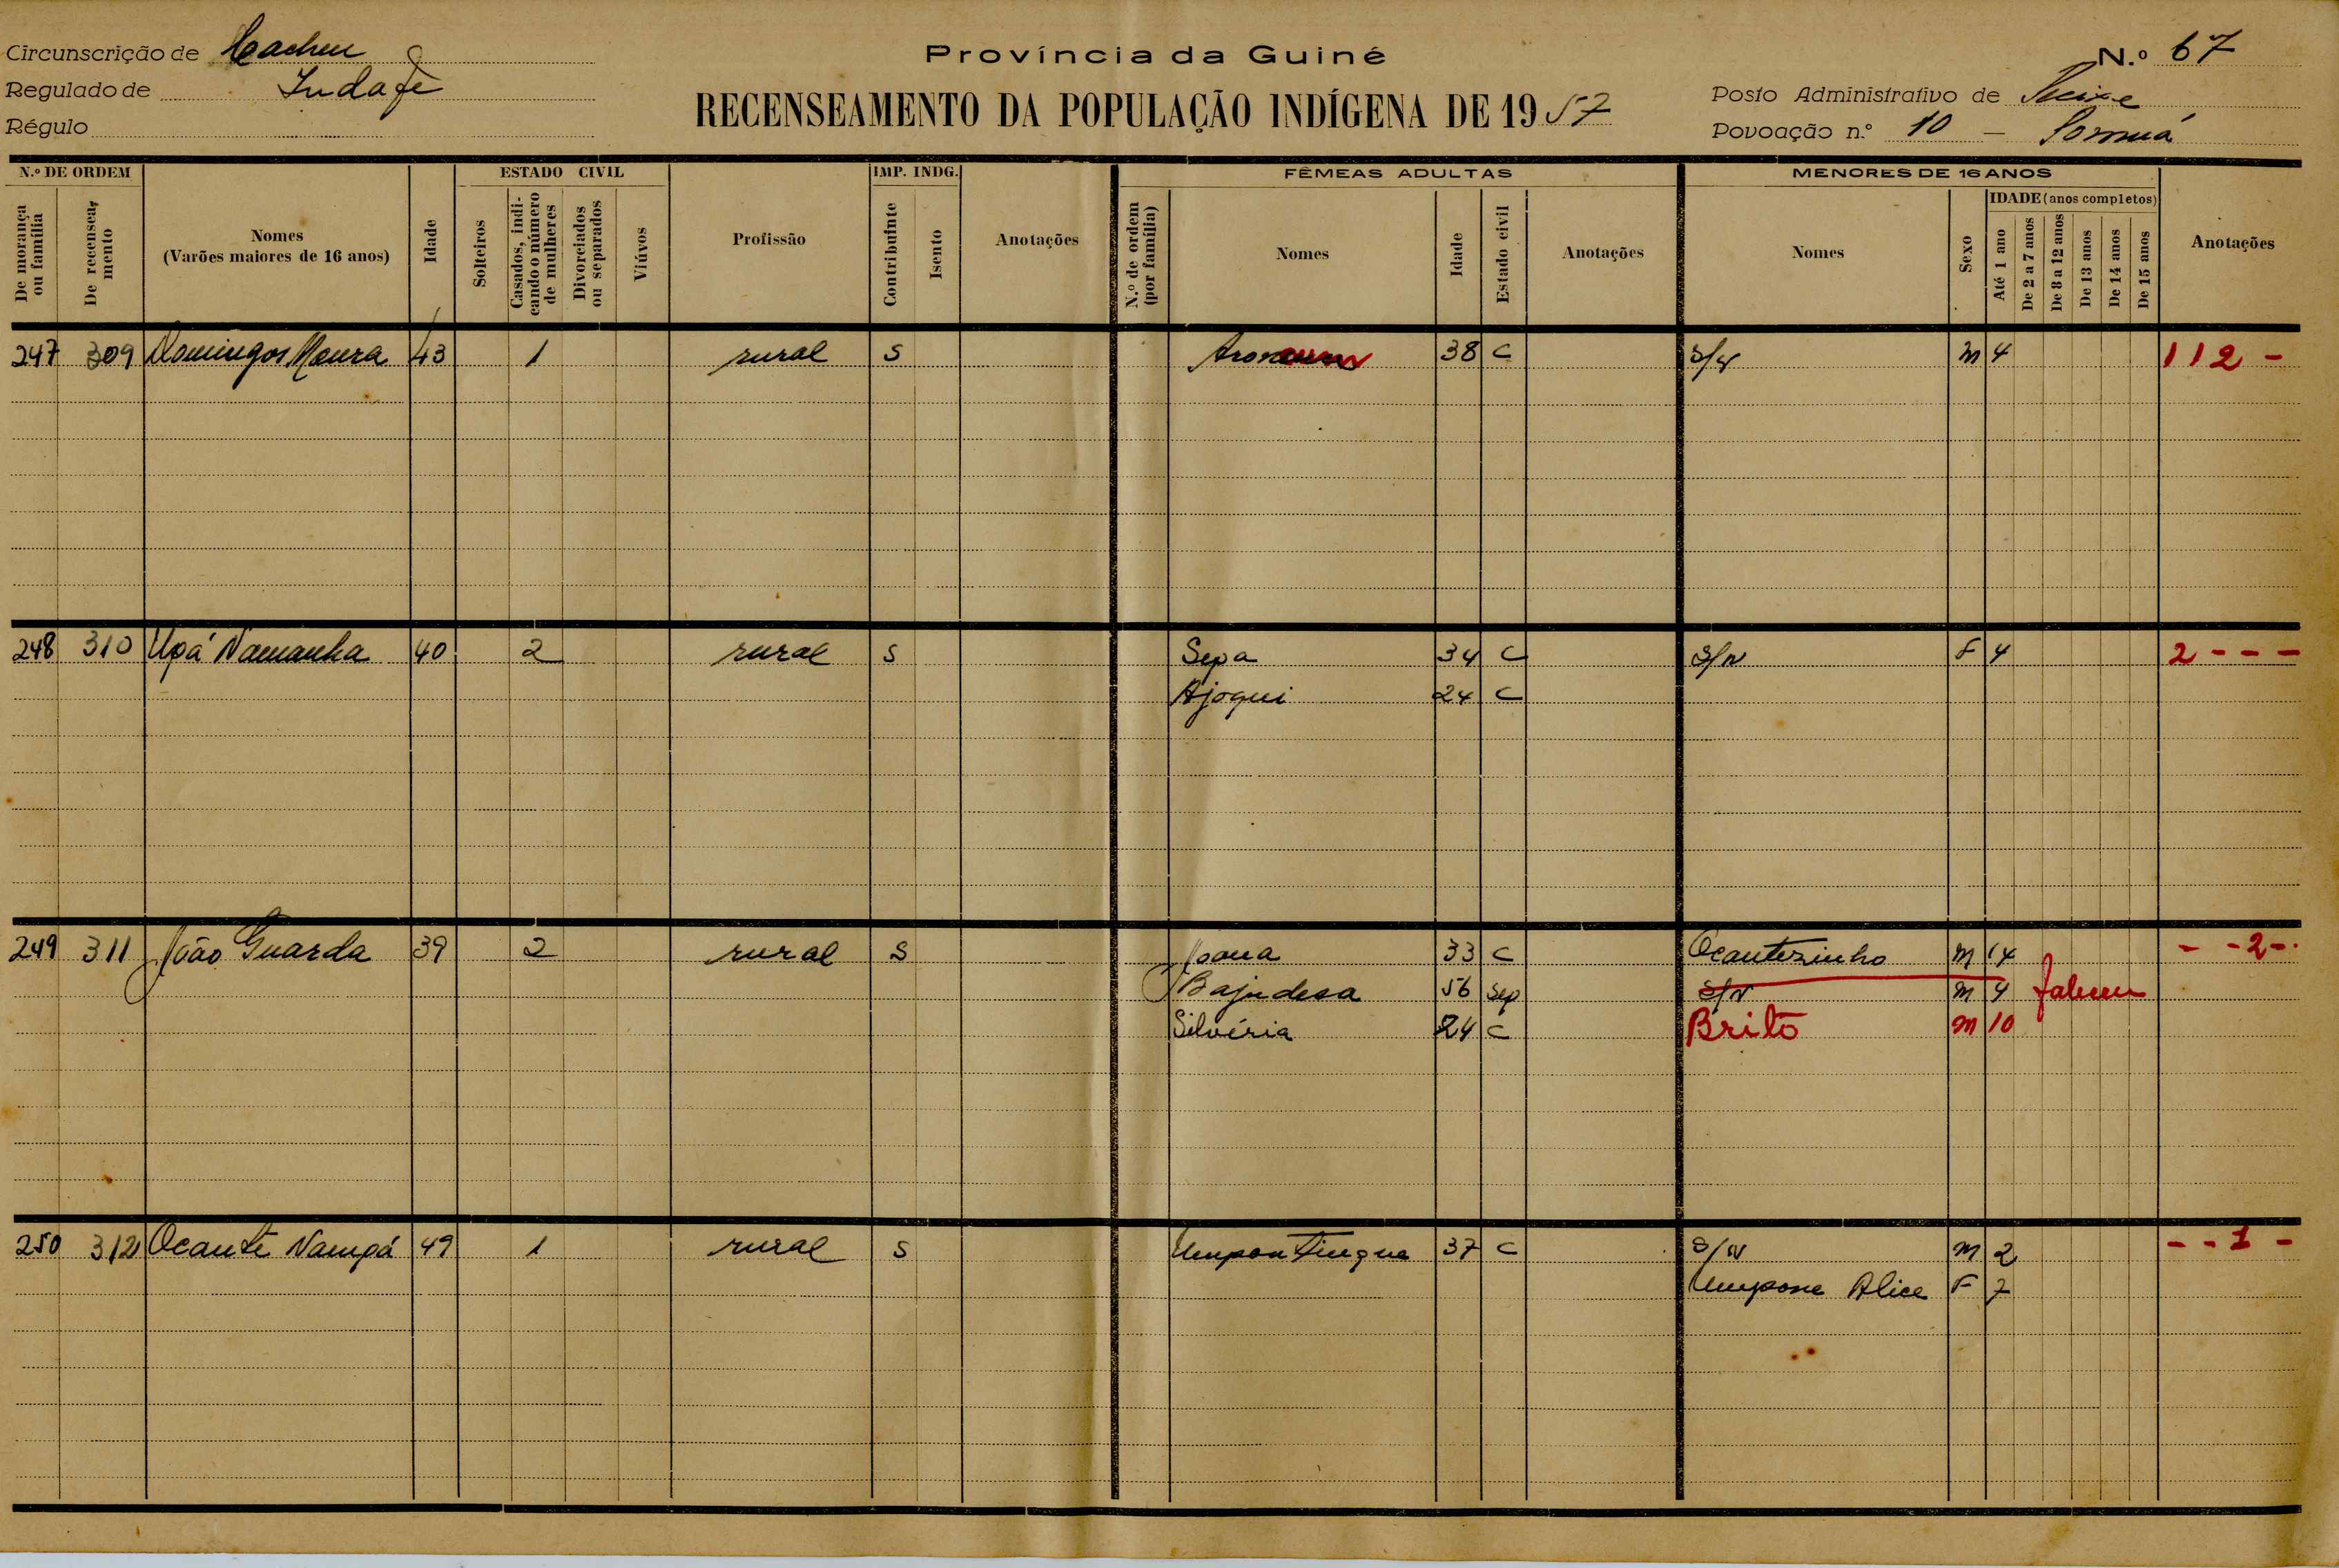 Circunscrição de Cacheu
Regulado de Indafe
Régulo
Província da Guiné
RECENSEAMENTO DA POPULAÇÃO INDÍGENA DE 1957
N.º 67
Posto Administrativo de
Povoação n.º 10 —
N.º DE ORDEM
De morança ou família
De recenseamento
Nomes
(Varões maiores de 16 anos)
Idade
ESTADO CIVIL
Solteiros
Casados, indicando o número de mulheres
Divorciados ou separados
Viúvos
Profissão
IMP. INDG.
Contribuinte
Isento
Anotações
FÊMEAS ADULTAS
N.º de ordem (por família)
Nomes
Idade
Estado civil
Anotações
MENORES DE 16 ANOS
Nomes
Sexo
IDADE (anos completos)
Até 1 ano
De 2 a 7 anos
De 8 a 12 anos
De 13 anos
De 14 anos
De 15 anos
Anotações
247 309 Domingos Moura 43 1 rural S 38 C M 4 112 -
248 310 Upá Namanha 40 2 rural S Sepa 34 C S/N F 4 2 - - -
Ajoqui 24 C
249 311 João Guarda 39 2 rural S Joana 33 C Ocantezinho M 14 - - 2 -
Bajudesa 56 Sep S/N M 4 faleceu
Silvéria 24 C Brito M 10
250 312 Ocante Nampá 49 1 rural S Umpontingue 37 C S/N M 2 - - 1 -
Umpone Alice F 7